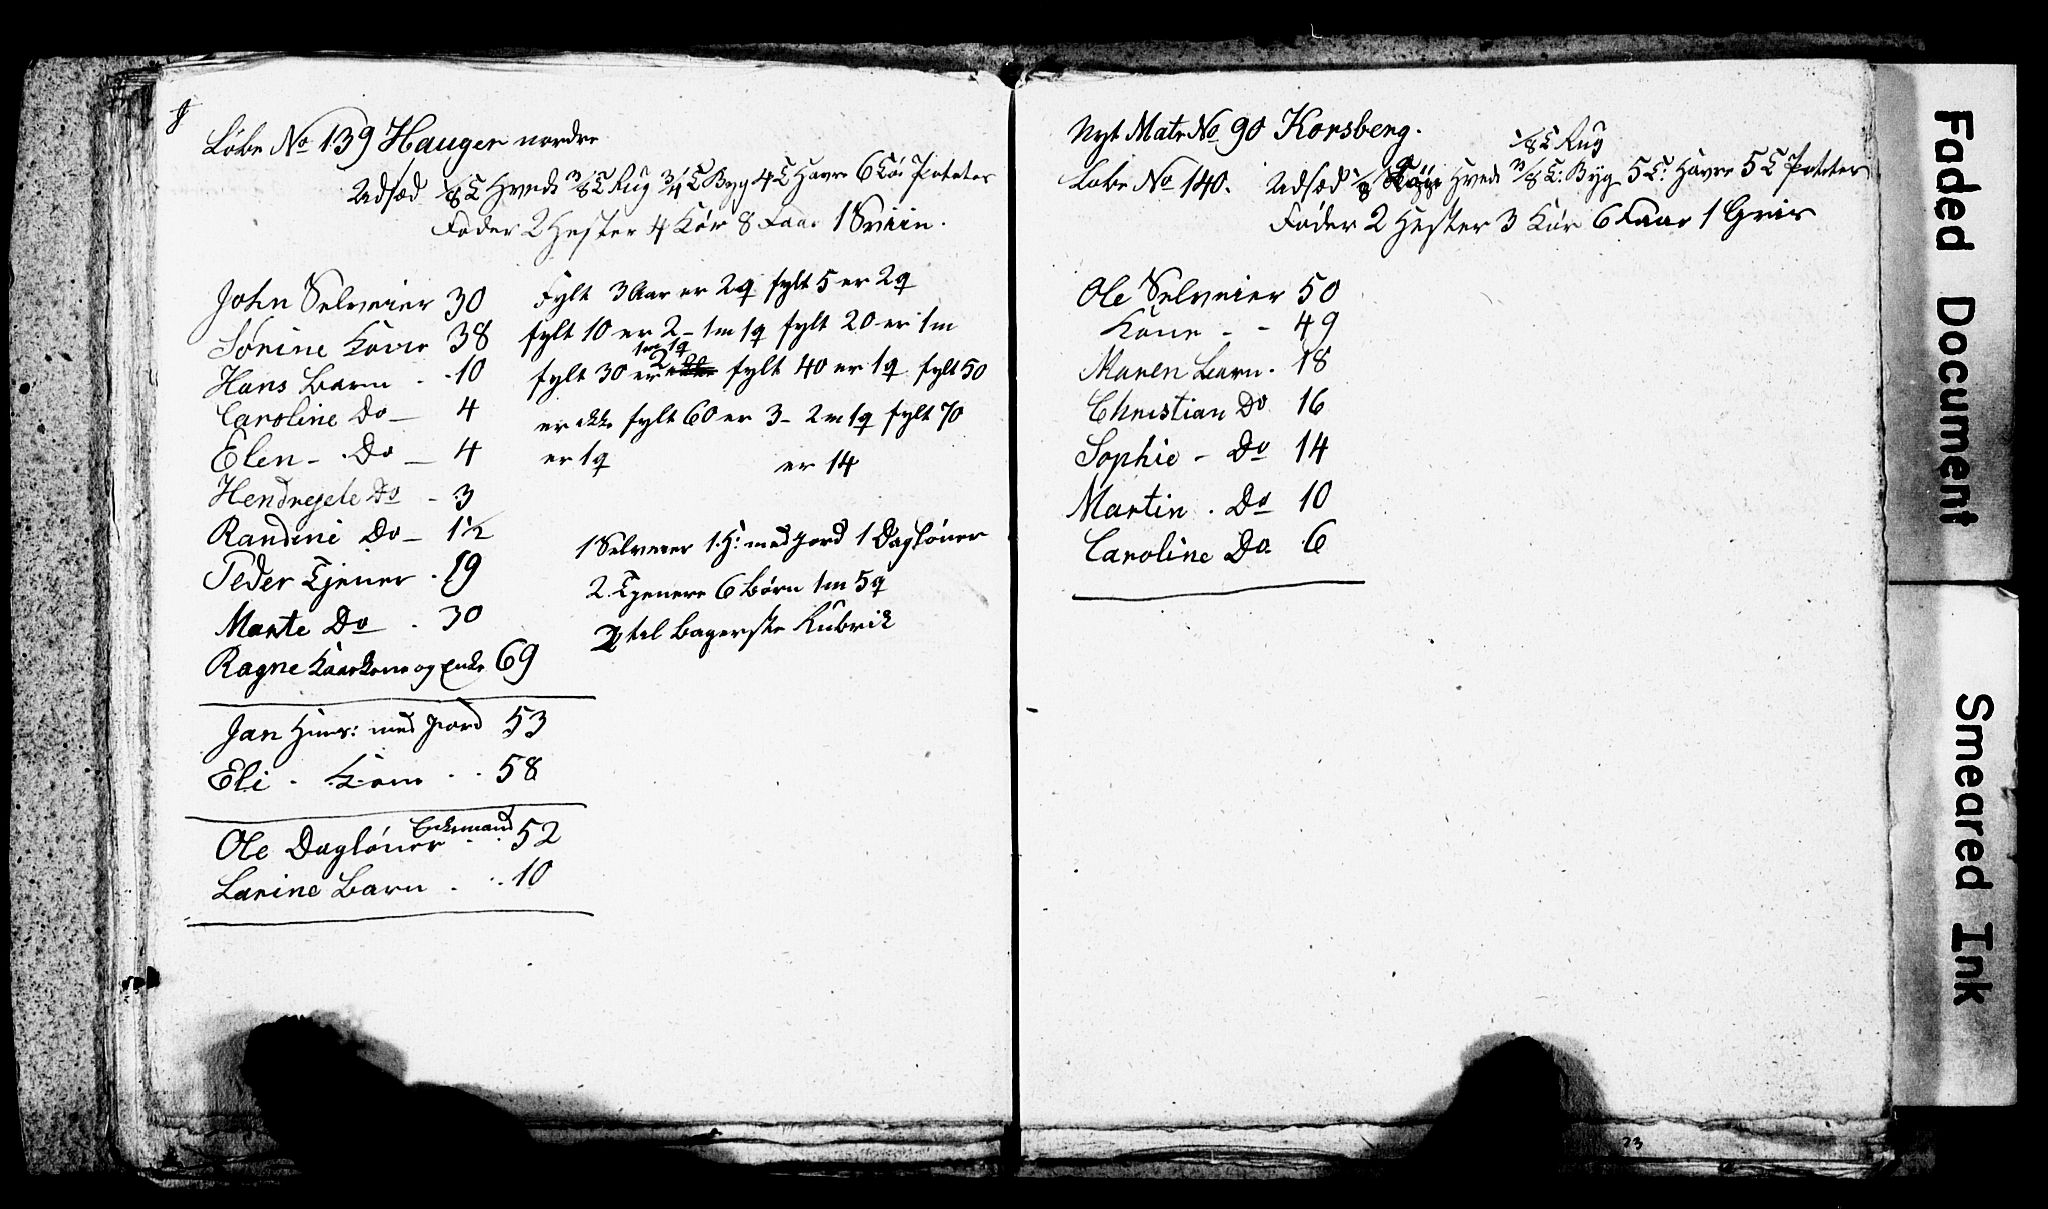 Løbe No 139 Hauger nordre
Udsæd 1/8 T Hvede 3/8 T Rug 3/4 T Byg 4 T Havre 6 Tø: Poteter
Føder 2 Hester 4 Kør 8 Faar 1 Sviin.
John Selveier 30
Sørine Kone 38
Hans Barn - 10
Caroline Do - 4
Elen - Do - 4
Hendregete Do - 3
Randine Do - 1 1/2
Peder Tjener - 19
Marte Do - 30
Ragne Kaarkone og Enke 69
Jan Huus: med Jord 53
Eli - Kone - - 58
Enkemand
Ole Dagløner - - 52
Larine Barn - - 10
Fylt 3 Aar er 2 q fylt 5 er 2 q
fylt 10 er 2 - 1 m 1 q fylt 20 er 1 m
1 m 1 q
fylt 30 er 2 fylt 40 er 1 q fylt 50
er ikke fylt 60 er 3 - 2 m 1 q fylt 70
er 1 q er 14
1 Selveier 1 H: med Jord 1 Dagløner
2 Tjenere 6 Børn 1 m 5 q
2 til Bagerste Rubrik
Nyt Matr No 90 Korsberg.
1/8 T Rug
Løbe No 140. Udsæd 1/8 Hvede 3/8 T: Byg 5 T: Havre 5 T Poteter
Føder 2 Hester 3 Kør 6 Faar 1 Gris
Ole Selveier 50
Kone - - 49
Maren Barn - 18
Christian Do 16
Sophie - Do 14
Martin - Do 10
Caroline Do 6
23
Faded Document
Smeared Ink